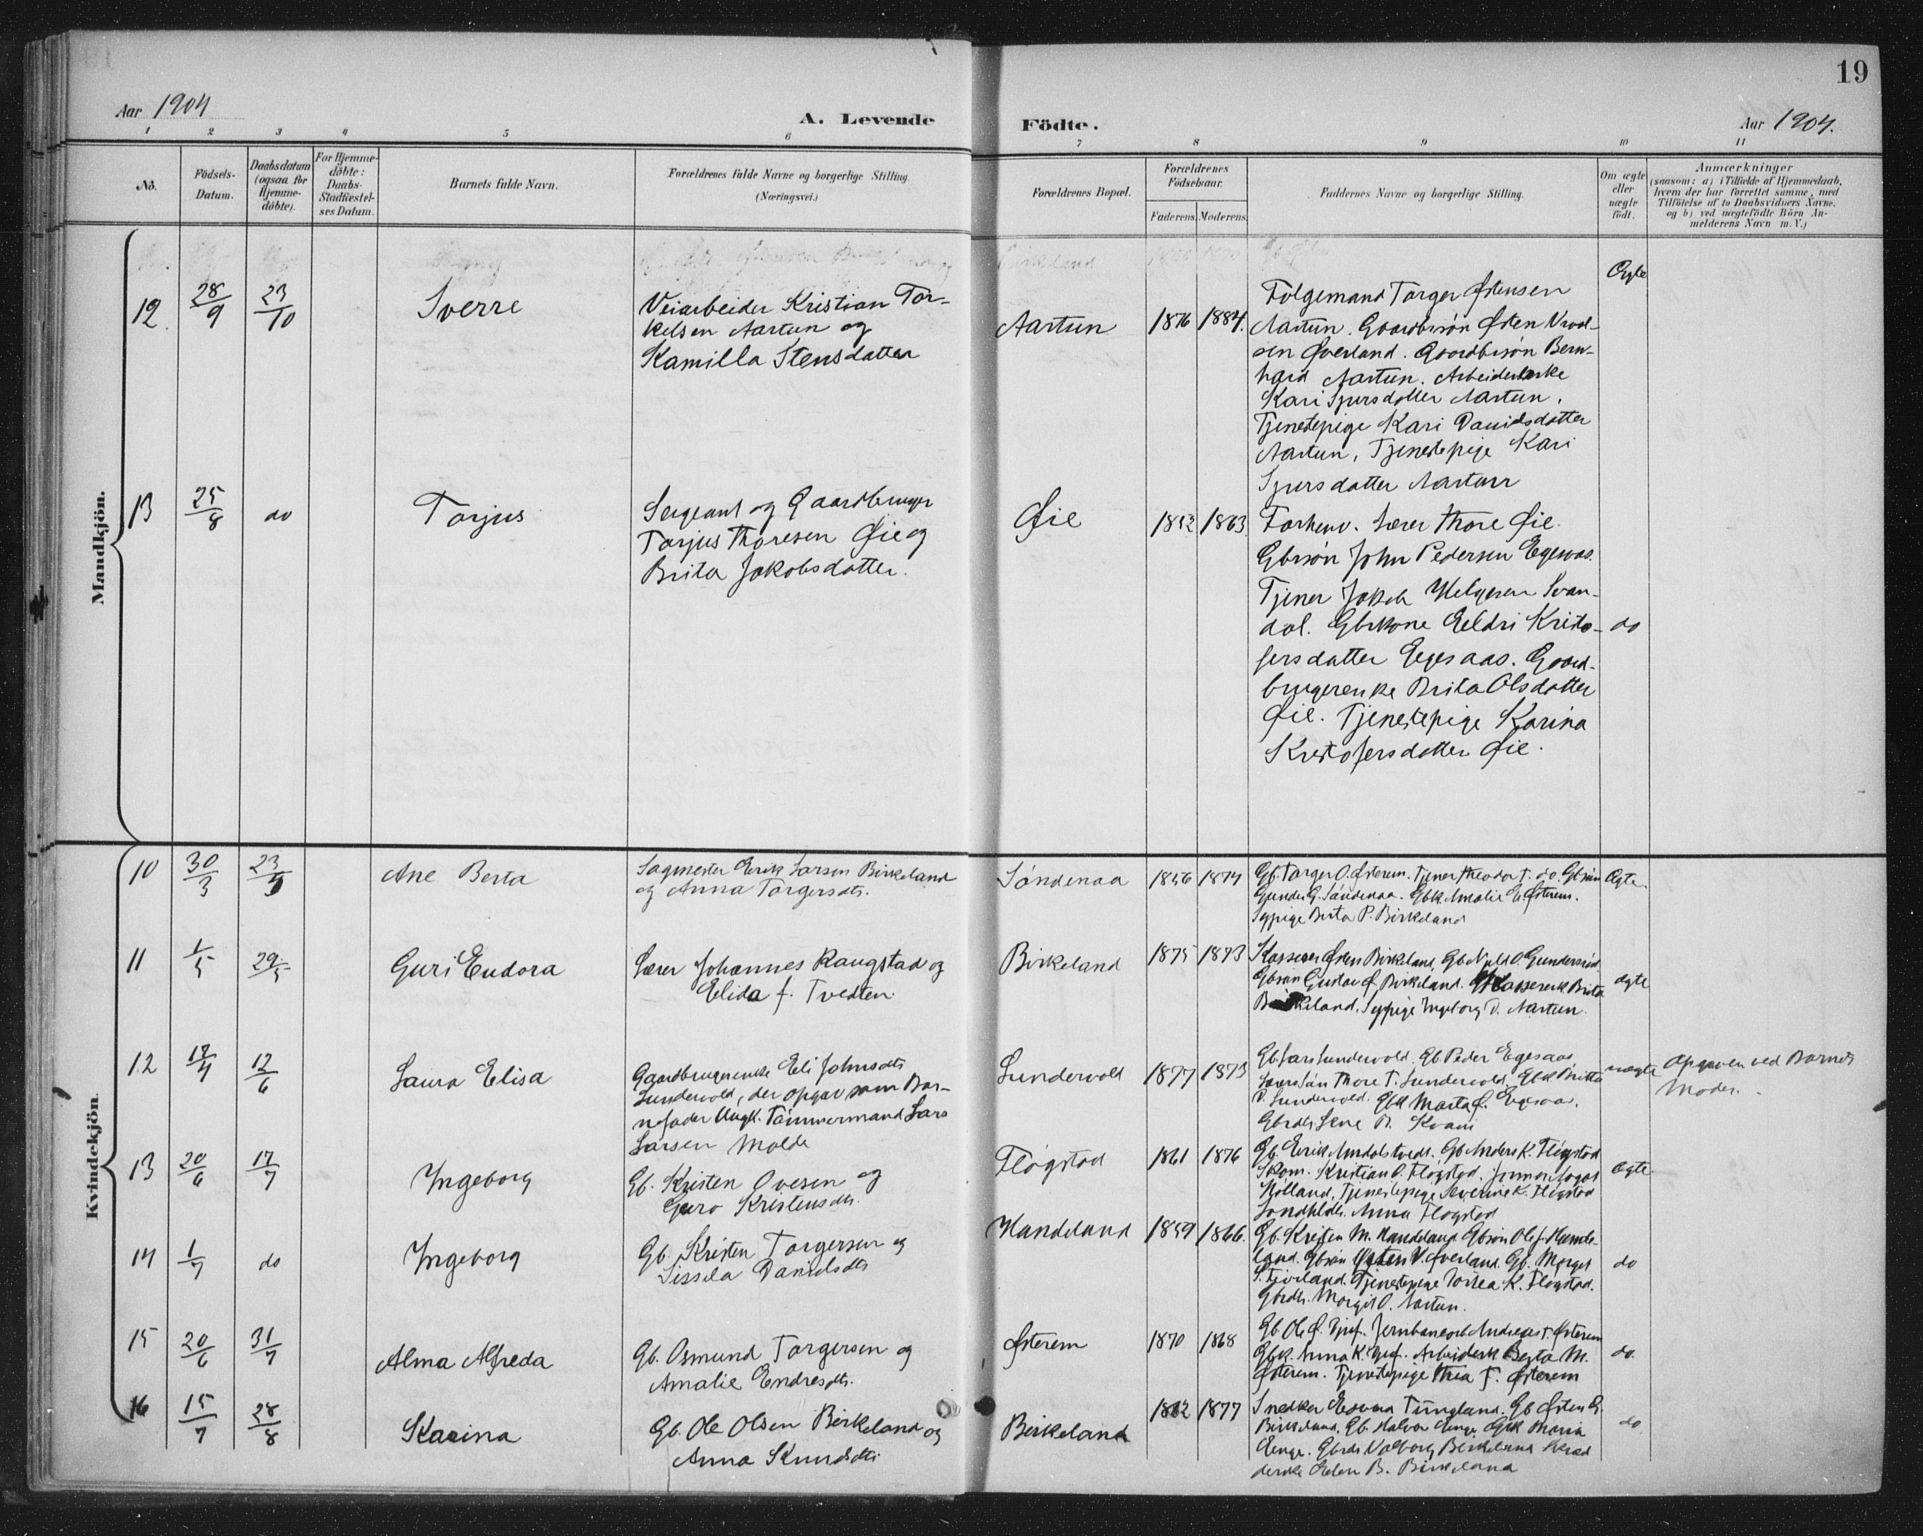 19
Aar 1904
A. Levende
Födte.
Aar 1904.
1 2 3 4 5 6 7 8 9 10 11
No.
Födsels-Datum.
Daabsdatum (ogsaa for Hjemme-döbte).
For Hjemme-döbte: Daabs-Stadfæstel-ses Datum.
Barnets fulde Navn.
Forældrenes fulde Navne og borgerlige Stilling.
(Næringsvei.)
Forældrenes Bopæl.
Forældrenes Födselsaar.
Faderens. Moderens.
Faddernes Navne og borgerlige Stilling.
Om ægte eller uægte födt.
Anmærkninger
(saasom: a) i Tilfælde af Hjemmedaab,
hvem der har forrettet samme, med
Tilföielse af to Daabsvidners Navne,
og b) ved uægtefödte Börn An-
melderens Navn m.V.)
Mandkjön.
12. 28/9 23/10 Sverre
Veiarbeider Kristian Tor-
kelsen Aartun og
Kamilla Stensdatter
Aartun 1876 1884.
Folgemand Torger Østensen
Aartun. Gaardbrsön Østen
sen Øverland. Gaardbrsön Bern-
hard Aartun. Arbeiderenke
Kari Sjursdatter Aartun.
Tjenestepige Kari Davidsdatter
Aartun, Tjenestepige Kari
Sjursdatter Aartun
Ægte
13 25/8 do Torjus
Sergeant og Gaardbruger
Torjus Thoresen Øie og
Brita Jakobsdatter.
Øie 1852 1863.
Forhenv. Lærer Thore Øie.
Gbrsön John Pedersen Egesaas.
Tjener Jakob Helgesen Svan-
dal. Gbrkone Eeldri Kristo-
fersdatter Egesaas. Gaard-
brugerenke Brita Olsdatter
Øie. Tjenestepige Karina
Kristofersdatter Øie.
do
Kvindekjön.
10 30/3 23/5 Ane Berta
Sagmester Eerik Larsen Birkeland
og Anna Torgersdtr.
Söndenaa 1856 1874
Gb. Torger O. Østerem. Tjener Theodor T. do. Gbrsön
Gunder G. Söndenaa. Gbk. Amalie E. Østerem.
Sypige Berta P. Birkeland
Ægte.
11 1/5 29/5 Guri Eudora
Lærer Johannes Raugstad og
Elida f. Tvedten.
Birkeland 1875 1873
Kasserer Østen Birkeland, Gb. O. Gundersröd.
Gbrsön Gustav Ø Birkeland. Kassererk Brita
Birkeland. Sypige Ingeborg D. Aartun.
ægte
12 17/4 12/6 Laura Elisa
Gaardbrugerenke Eli Johnsdtr
Lundevold, der opgav som Bar-
nefader Ungk. Tömmermand Lars
Larsen Molde
Lundevold 1877 1873
Gb. Lars Lundevold. Gb. Peder Egesaas
Thore T. Lundevold. Gbk Britta
Lundevold. Gbk Marta Egesaa.
Gbrdtr Lene Kvam
uægte
Opgaven ved Barnets
Moder.
13 20/6 17/7 Ingeborg
Gb. Kristen Ovesen og
Guro Kristensdtr.
Flögstad 1861 1876
Gb. Eerik Gb. Anders K. Flögstad
Skom. Kristian O. Flögstad.
Hölland, Tjenestepige Severine K. Flögstad
Anna Flögstad
Ægte
14 1/7 do Ingeborg
Gb. Kristen Torgersen og
Sissela Danielsdtr
Handeland 1859 1866.
Gb. Kristen M. Handeland Gbrsön Olaf Hande-
land. Gbrsön Østen V. Øverland. Gb.
Tjenestepige K. Flögstad.
Gbrdtr. Margit O. Aartun.
do
15 20/6 31/7 Alma Alfreda
Gb. Osmund Torgersen og
Amalie Endresdtr.
Østerem 1870 1868
Gb. Ole Ø. Jernbanearb Andreas T. Østerem
Gbk. Anna K. Arbeiderk Berta M.
Østerem. Tjenestepige Thea T. Østerem
do.
16 15/7 28/8 Karina
Gb. Ole Olsen Birkeland og
Anna Knudsdtr
Birkeland 1862 1877
Snedker Tungland. Gb. Østen G.
Birkeland. Gb. Halvor Eeinge. Gbk Maria
Eeinge. Gbrdtr Valborg Birkeland
Elen B. Birkeland
do